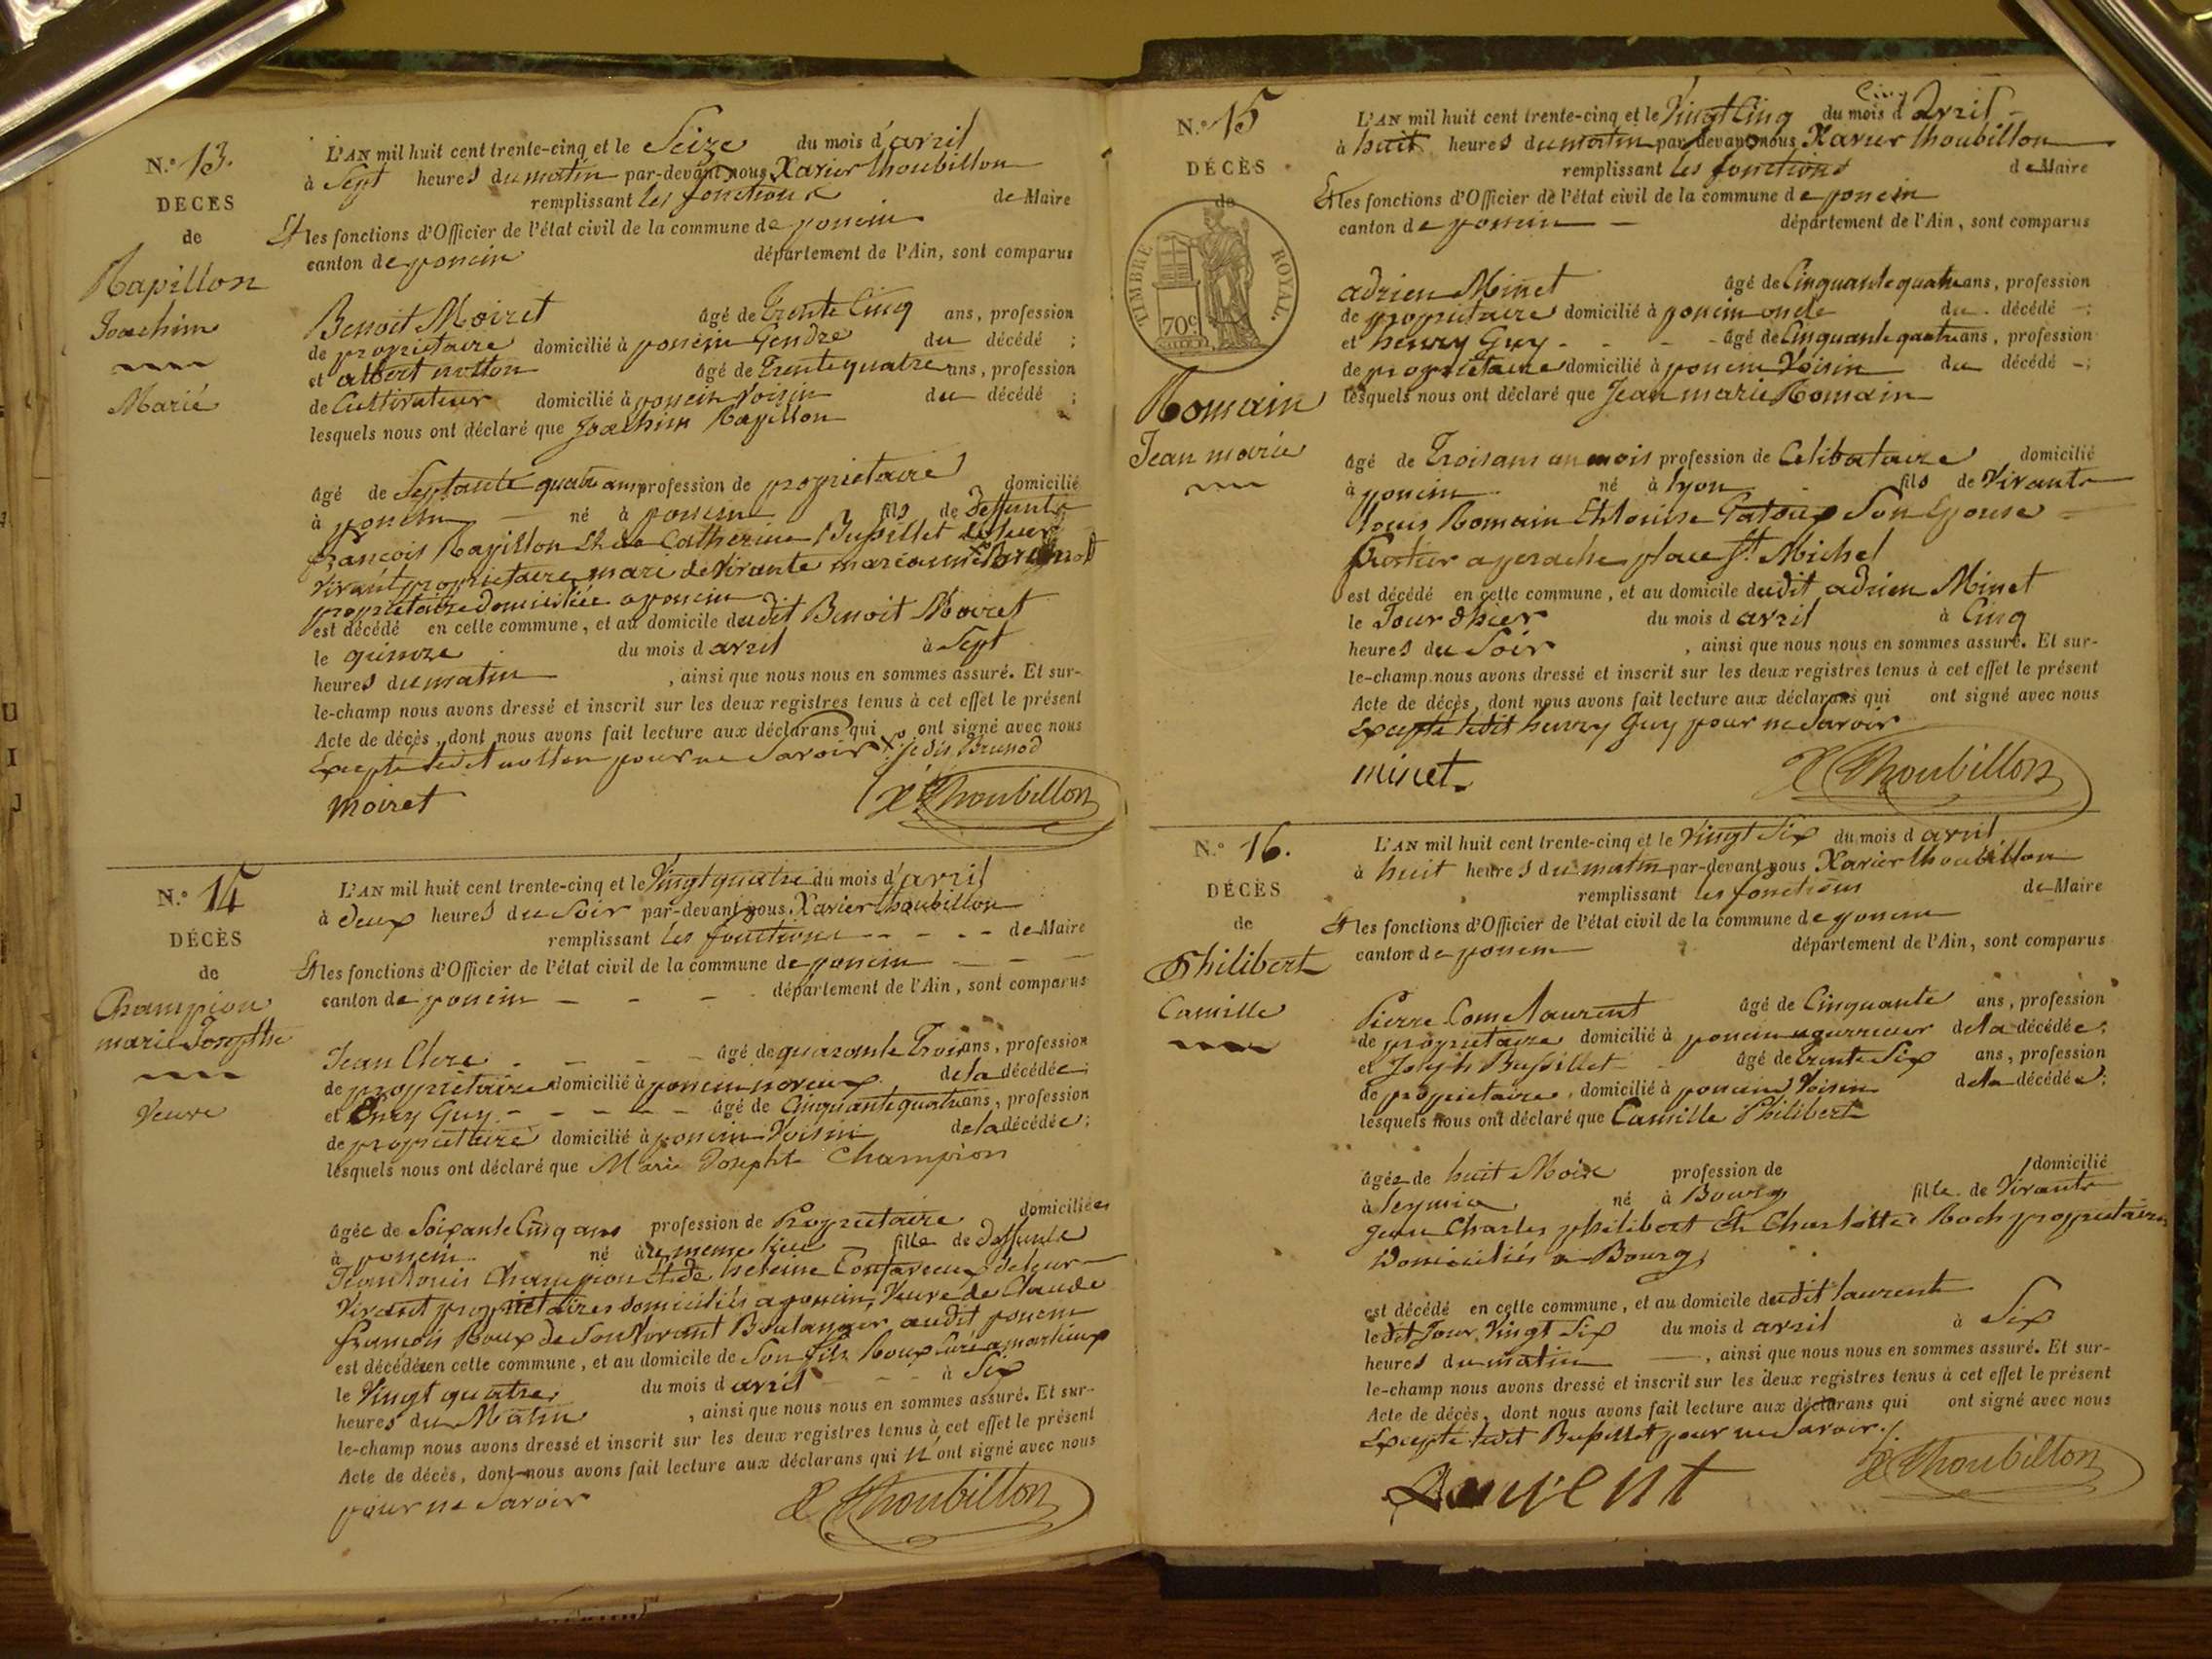 N.° 13.
DÉCÈS
de
Rapillon
Joachim
Marié
L'AN mil huit cent trente-cinq et le Seize du mois d'avril
à Sept heures du matin par-devant nous Xavier Thoubillon
remplissant les fonctions de Maire
Et les fonctions d'Officier de l'état civil de la commune de poncin
canton de poncin département de l'Ain, sont comparus
Benoit Moiret âgé de Trente Cinq ans, profession
de proprietaire domicilié à poncin Gendre du décédé ;
et albert notton âgé de Trente quatre ans, profession
de Cultivateur domicilié à poncin Voisin du décédé ;
lesquels nous ont déclaré que Joachim Rapillon
âgé de Septante quatre ans profession de proprietaire domicilié
à poncin né à poncin fils de deffunts
francois Rapillon Et de Catherine Bussillet de leur
vivant proprietaire mari de Vivante marianne
proprietaire domiciliée a poncin
est décédé en cette commune, et au domicile dudit Benoit Moiret
le quinze du mois d avril à Sept
heures du matin , ainsi que nous nous en sommes assuré. Et sur-
le-champ nous avons dressé et inscrit sur les deux registres tenus à cet effet le présent
Acte de décès, dont nous avons fait lecture aux déclarans qui ont signé avec nous
Excepté ledit notton pour ne Savoir je dis Brunod
moiret X Thoubillon
N.° 14
DÉCÈS
de
Champion
marie Josephte
Veuve
L'AN mil huit cent trente-cinq et le Vingt quatre du mois d'avril
à deux heures du Soir par-devant nous Xavier Thoubillon
remplissant les fonctions de Maire
Et les fonctions d'Officier de l'état civil de la commune de poncin
canton de poncin département de l'Ain, sont comparus
Jean Clerc âgé de quarante Trois ans, profession
de proprietaire domicilié à poncin neveux de la décédée ;
et Enry Guy âgé de Cinquante quatre ans, profession
de proprietaire domicilié à poncin Voisin de la décédée ;
lesquels nous ont déclaré que Marie Josephte Champion
âgée de Soixante Cinq ans profession de Proprietaire domiciliée
à poncin né à le meme lieu fille de deffunts
Jean Louis Champion Et de heleine de leur
Vivant proprietaires domiciliés a poncin, Veuve de Claude
francois Roux de Son Vivant Boulanger audit poncin
est décédée en cette commune, et au domicile de Son fils Roux Curé a
le Vingt quatre du mois d avril à Six
heures du Matin , ainsi que nous nous en sommes assuré. Et sur-
le-champ nous avons dressé et inscrit sur les deux registres tenus à cet effet le présent
Acte de décès, dont nous avons fait lecture aux déclarans qui n'ont signé avec nous
pour ne Savoir X Thoubillon
N.° 15
DÉCÈS
de
TIMBRE ROYAL.
70c
Romain
Jean marie
L'AN mil huit cent trente-cinq et le Vingt Cinq du mois d Avril
à huit heures du matin par-devant nous Xavier Thoubillon
remplissant les fonctions de Maire
Et les fonctions d'Officier de l'état civil de la commune de poncin
canton de poncin département de l'Ain, sont comparus
adrien Minet âgé de Cinquante quatre ans, profession
de proprietaire domicilié à poncin oncle du décédé ;
et henry Guy âgé de Cinquante quatre ans, profession
de proprietaire domicilié à poncin Voisin du décédé ;
lesquels nous ont déclaré que Jean marie Romain
âgé de Trois ans un mois profession de Celibataire domicilié
à poncin né à lyon fils de Vivants
louis Romain Et louise Son Epouse
a perache place St. Michel
est décédé en cette commune, et au domicile dudit adrien Minet
le Jour d'hier du mois d avril à Cinq
heures du Soir , ainsi que nous nous en sommes assuré. Et sur-
le-champ nous avons dressé et inscrit sur les deux registres tenus à cet effet le présent
Acte de décès, dont nous avons fait lecture aux déclarans qui ont signé avec nous
Excepté ledit henry Guy pour ne Savoir
minet. X Thoubillon
N.° 16.
DÉCÈS
de
Philibert
Camille
L'AN mil huit cent trente-cinq et le Vingt Six du mois d avril
à huit heures du matin par-devant nous Xavier Thoubillon
remplissant les fonctions de Maire
Et les fonctions d'Officier de l'état civil de la commune de poncin
canton de poncin département de l'Ain, sont comparus
Pierre Come laurent âgé de Cinquante ans, profession
de proprietaire domicilié à poncin de la décédée ;
et Joseph Bussillet âgé de trente Six ans, profession
de proprietaire domicilié à poncin Voisin de la décédée ;
lesquels nous ont déclaré que Camille Philibert
âgée de huit Mois profession de domicilié
à leymia né à Bourg fille de Vivants
Jean Charles philibert Et Charlotte Roch proprietaires
Domiciliés a Bourg
est décédé en cette commune, et au domicile dudit laurent
le dit Jour Vingt Six du mois d avril à Six
heures du matin , ainsi que nous nous en sommes assuré. Et sur-
le-champ nous avons dressé et inscrit sur les deux registres tenus à cet effet le présent
Acte de décès, dont nous avons fait lecture aux déclarans qui ont signé avec nous
Excepté ledit Bussillet pour ne Savoir./.
Laurent X Thoubillon